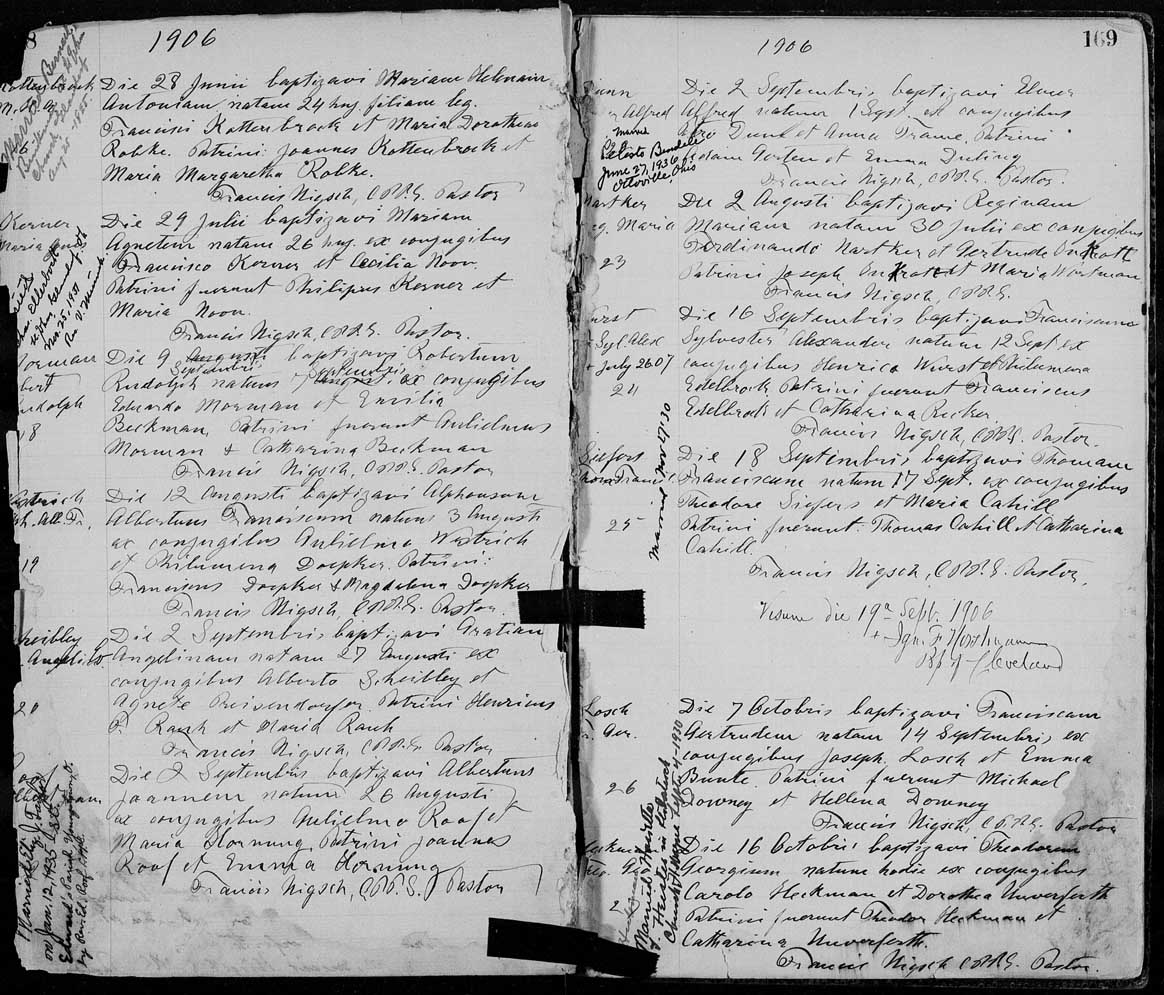 8
1906
Kottenbrock
Die 28 Junii baptizavi Mariam Helenam
Antoniam natam 24 huj. filiam leg.
Francisci Kottenbrock et Maria Dorothea
Robke. Patrini: Joannes Kottenbrock et
Maria Margaretha Robke.
Francis Nigsch, C.PP.S. Pastor
Kerner
Maria
Die 29 Julii baptizavi Mariam
Agnetem natam 26 huj. ex conjugibus
Francisco Kerner et Cecilia Noon.
Patrini fuerunt Philipus Kerner et
Maria Noon.
Francis Nigsch C.PP.S. Pastor.
Mar. 25, 1951
Rev. V.
ormann
bert
udolph
18
Die 9 Augusti baptizavi Robertum
Septembris
Rudolph natum 7 Augusti. ex conjugibus
Septembris
Eduardo Morman et Emilia
Beckman, Patrini fuerunt Gulielmus
Morman & Catharina Beckman
Francis Nigsch, C.PP.S. Pastor
19
Die 12 Augusti baptizavi Alphonsum
Albertum Franciscum natum 3 Augusti
ex conjugibus Gulielmo Westrich
et Philumena Doepker. Patrini:
Franciscus Doepker & Magdalena Doepker
Francis Nigsch C.PP.S. Pastor.
heibley
20
Die 2 Septembris baptizavi Gratiam
Angelinam natam 27 Augusti ex
conjugibus Alberto Scheibley et
Agnete Preisendorfer Patrini Henricus
P. Rauh et Maria Rauh
Francis Nigsch, C.PP.S. Pastor
Die 2 Septembris baptizavi Albertum
Joannem natum 26 Augusti
ex conjugibus Gulielmo Roof et
Maria Hornung Patrini Joannes
Roof et Emma Hornung
Francis Nigsch, C.PP.S. Pastor
Married
on Jan. 12, 1935
1906
169
Alfred
Die 2 Septembris, baptizavi Elmer
Alfred natum 1 Sept. ex conjugibus
et Anna Frame, Patrini
Gorten et Emma
Francis Nigsch, C.PP.S. Pastor.
Married
Celeste Bendele
June 27, 1936
Ottoville, Ohio
Hartker
Reg. Maria
23
Die 2 Augusti baptizavi Reginam
Mariam natam 30 Julii ex conjugibus
Ferdinando Hartker et Gertrude Onkrott
Patrini Joseph Onkrott et Maria Wortman
Francis Nigsch, C.PP.S.
urst
July 26 07
24
Die 16 Septembris baptizavi Franciscum
Sylvester Alexander natum 12 Sept ex
conjugibus Henrico Wurst et Philumena
Edelbrock, Patrini fuerunt Franciscus
Edelbrock et Catharina Recker
Francis Nigsch, C.PP.S. Pastor.
Siefers
Thom Franc.
25
Married Nov 27 '30
Die 18 Septembris baptizavi Thomam
Franciscum natum 17 Sept. ex conjugibus
Theodore Siefers et Maria Cahill
Patrini fuerunt. Thomas Cahill et Catharina
Cahill.
Francis Nigsch, C.PP.S. Pastor.
Visum die 19a Sept. 1906
+ Ign. F. Horstmann
Bp of Cleveland
Losch
Ger.
26
Die 7 Octobris baptizavi Franciscam
Gertrudem natam 14 Septembris ex
conjugibus Joseph Losch et Emma
Bunte Patrini fuerunt Michael
Downey et Hellena Downey
Francis Nigsch, C.PP.S. Pastor
2
Die 16 Octobris baptizavi Theodorem
Georgium natum hodie ex conjugibus
Carolo Heckman et Dorothea Unverferth
Patrini fuerunt Theodor Heckman et
Catharina Unverferth.
Francis Nigsch C.PP.S. Pastor.